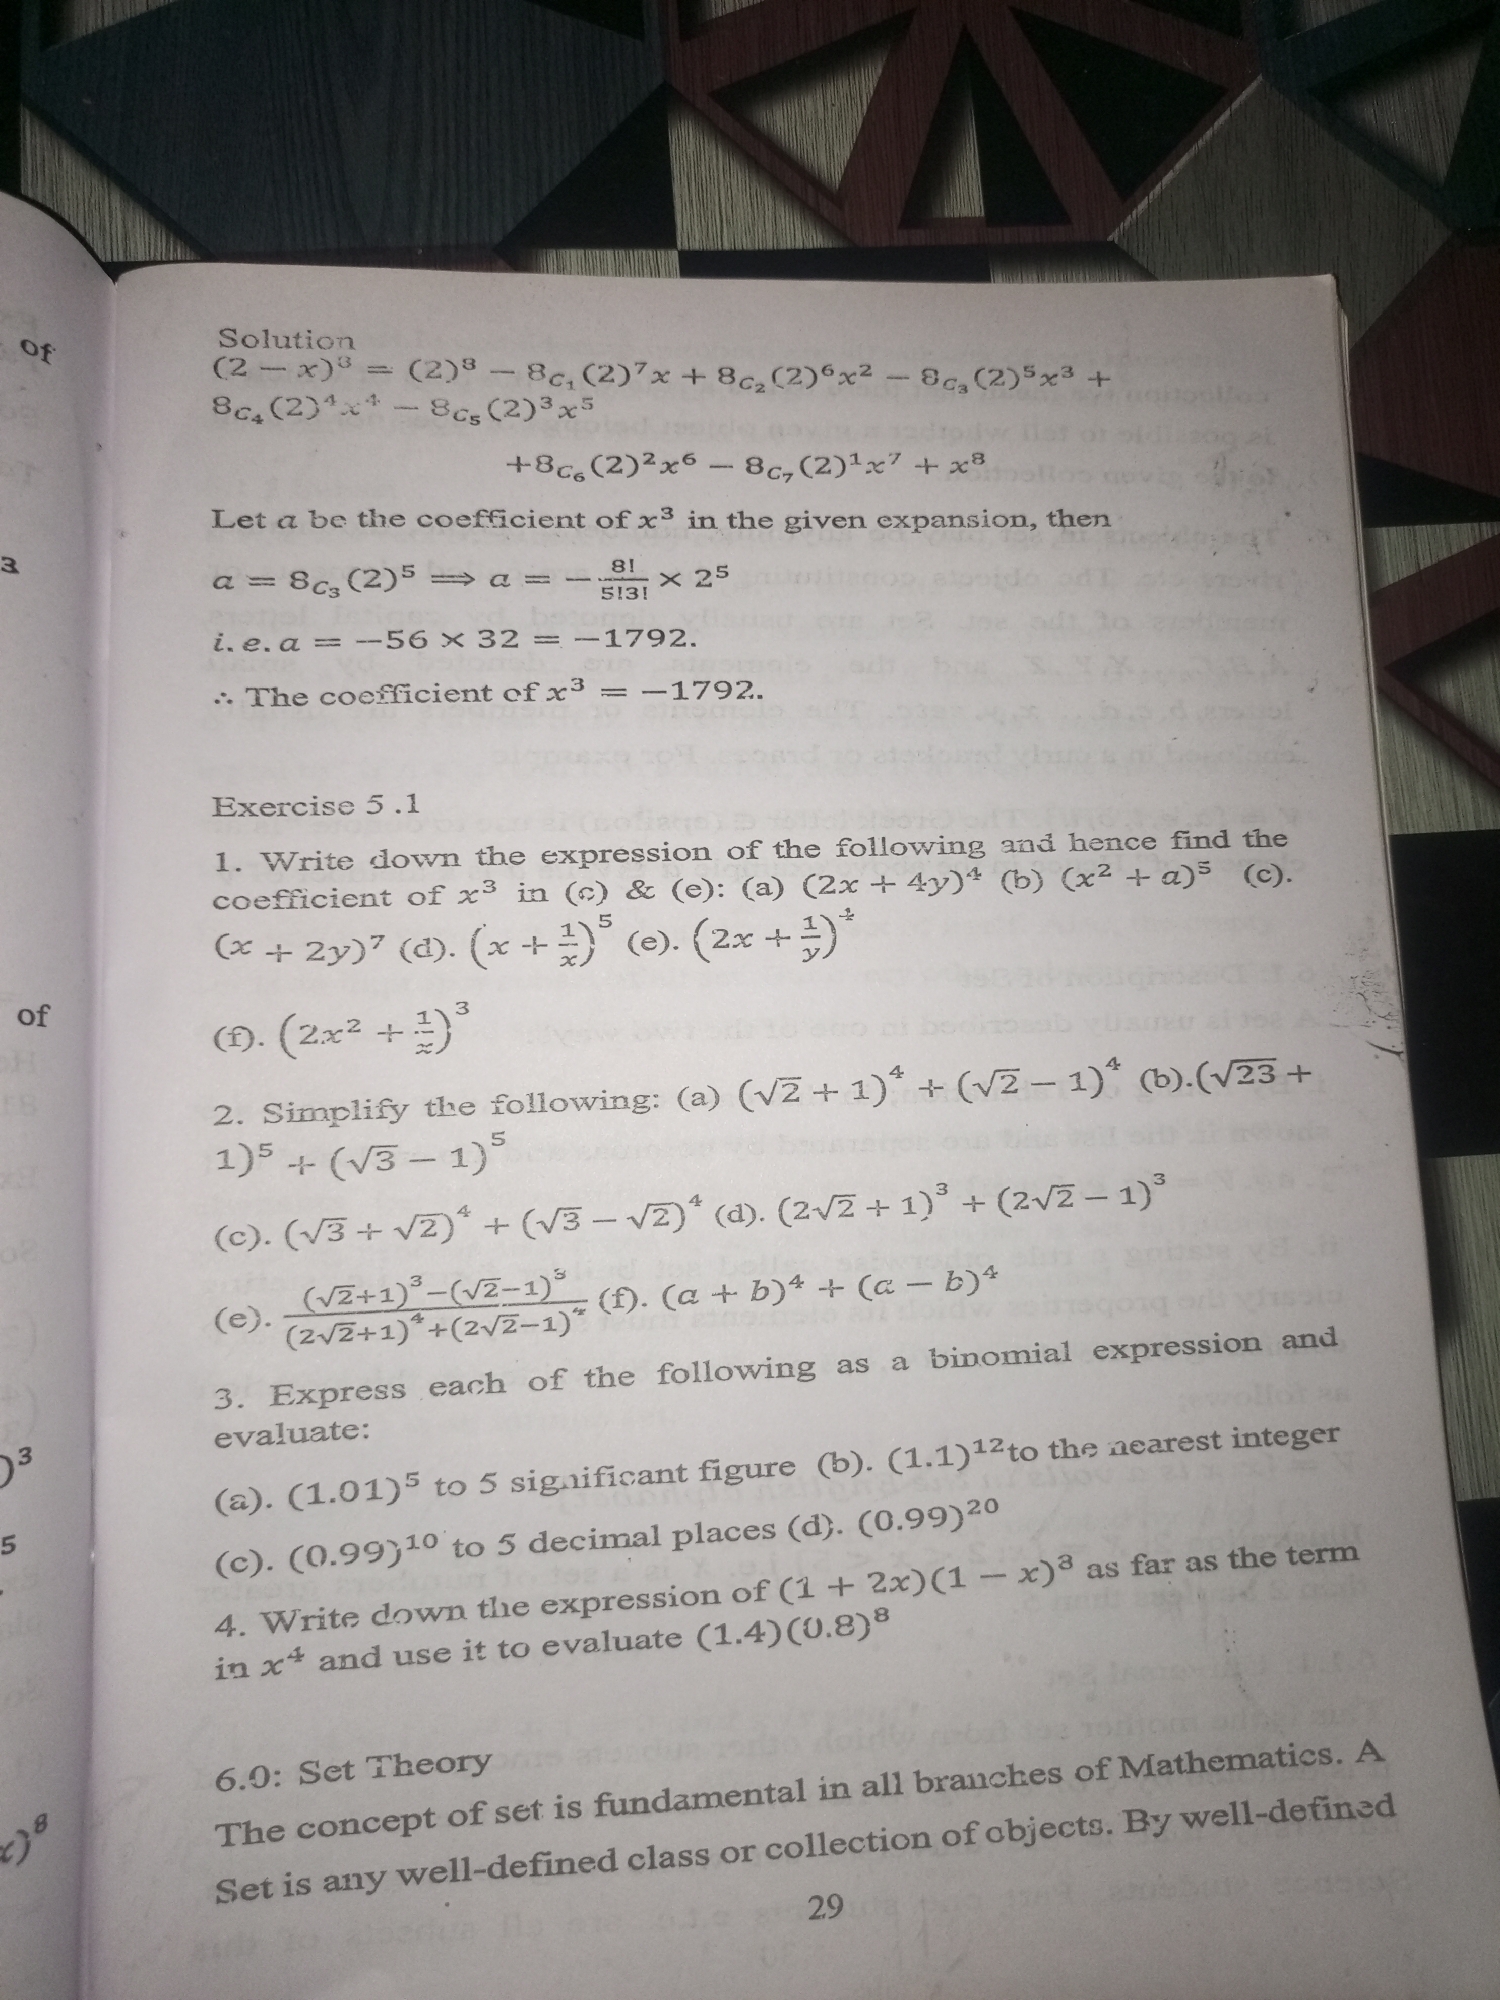 Solution
(2 − x)⁸ = (2)⁸ − 8C₁(2)⁷x + 8C₂(2)⁶x² − 8C₃(2)⁵x³ +
8C₄(2)⁴x⁴ − 8C₅(2)³x⁵
+8C₆(2)²x⁶ − 8C₇(2)¹x⁷ + x⁸
Let a be the coefficient of x³ in the given expansion, then
a = 8C₃(2)⁵ ⟹ a = − 8!/5!3! × 2⁵
i.e. a = −56 × 32 = −1792.
∴ The coefficient of x³ = −1792.
Exercise 5.1
1. Write down the expression of the following and hence find the
coefficient of x³ in (c) & (e): (a) (2x + 4y)⁴ (b) (x² + a)⁵ (c).
(x + 2y)⁷ (d). (x + 1/x)⁵ (e). (2x + 1/y)⁴
(f). (2x² + 1/x)³
2. Simplify the following: (a) (√2 + 1)⁴ + (√2 − 1)⁴ (b).(√23 +
1)⁵ + (√3 − 1)⁵
(c). (√3 + √2)⁴ + (√3 − √2)⁴ (d). (2√2 + 1)³ + (2√2 − 1)³
(e). (√2+1)³−(√2−1)³/(2√2+1)⁴+(2√2−1)⁴ (f). (a + b)⁴ + (a − b)⁴
3. Express each of the following as a binomial expression and
evaluate:
(a). (1.01)⁵ to 5 significant figure (b). (1.1)¹²to the nearest integer
(c). (0.99)¹⁰ to 5 decimal places (d). (0.99)²⁰
4. Write down the expression of (1 + 2x)(1 − x)⁸ as far as the term
in x⁴ and use it to evaluate (1.4)(0.8)⁸
6.0: Set Theory
The concept of set is fundamental in all branches of Mathematics. A
Set is any well-defined class or collection of objects. By well-defined
29
of
3
of
)³
5
x)⁸